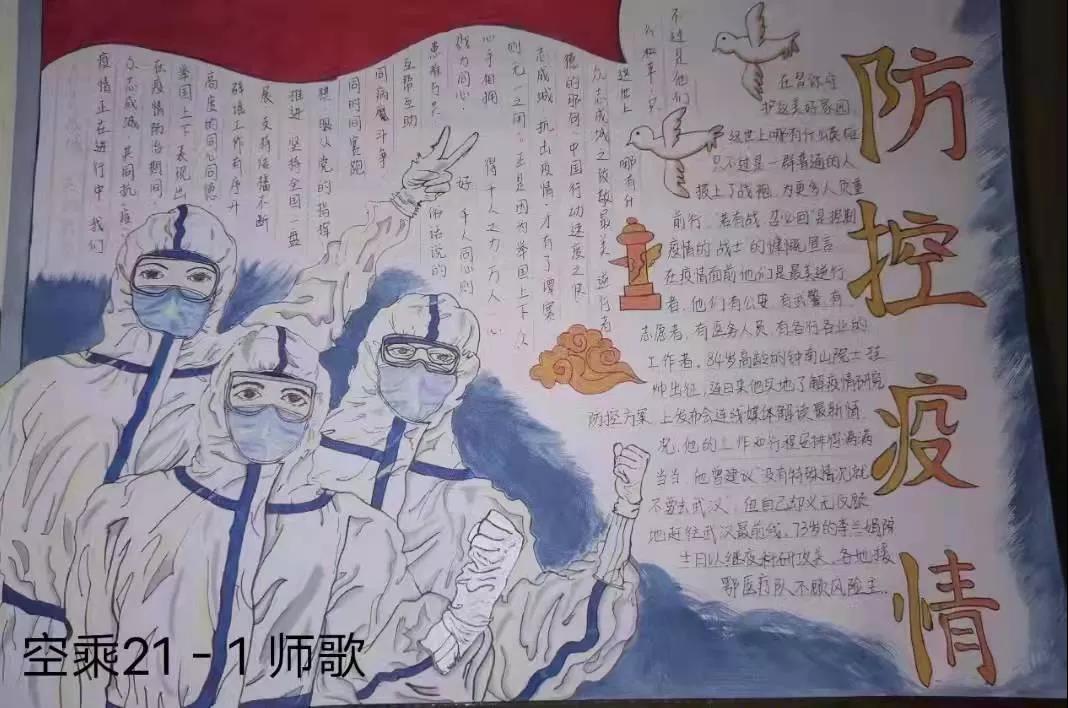 防控疫情
在召你守
护这美好家园,
经世上哪有什么英雄
只不过是一群普通的人
披上了战袍,为更多人负重
前行,"若有战,召必回"是抵制
疫情的战士的慷慨宣言
在疫情面前他们是最美逆行
者,他们有公安,有武警,有
志愿者,有医务人员,有各行各业的
工作者。84岁高龄的钟南山院士挂
帅出征,连日来他实地了解疫情研究
防控方案,上发布会连线媒体解读最新情
况,他的工作和行程安排得满满
当当。他曾建议"没有特殊情况就
不要去武汉",但自己却义无反顾
地赶往武汉最前线。73岁的李兰娟院
士日以继夜科研攻关,各地援
鄂医疗队不顾风险主
疫情正在进行中,我们
众志成城,共同抗疫
在疫情防治期间,
举国上下,表现出
高度的同心同德
群防工作有序开
展,支持援播不断
推进,坚持全国一盘
棋,服从党的指挥
同时间赛跑
同病魔斗争
互帮互助
患难与共
戮力同心
心手相拥
得十人之力,万人一心
好,千人同心,则
俗话说的
则无一之用。正是因为举国上下众
志成城,抗击疫情,才有了谭赛
德的那句:中国行动速度之快
众志成城之致敬最美逆行者
这世上
哪有什
么松革
不过是他们
空乘21-1 师歌